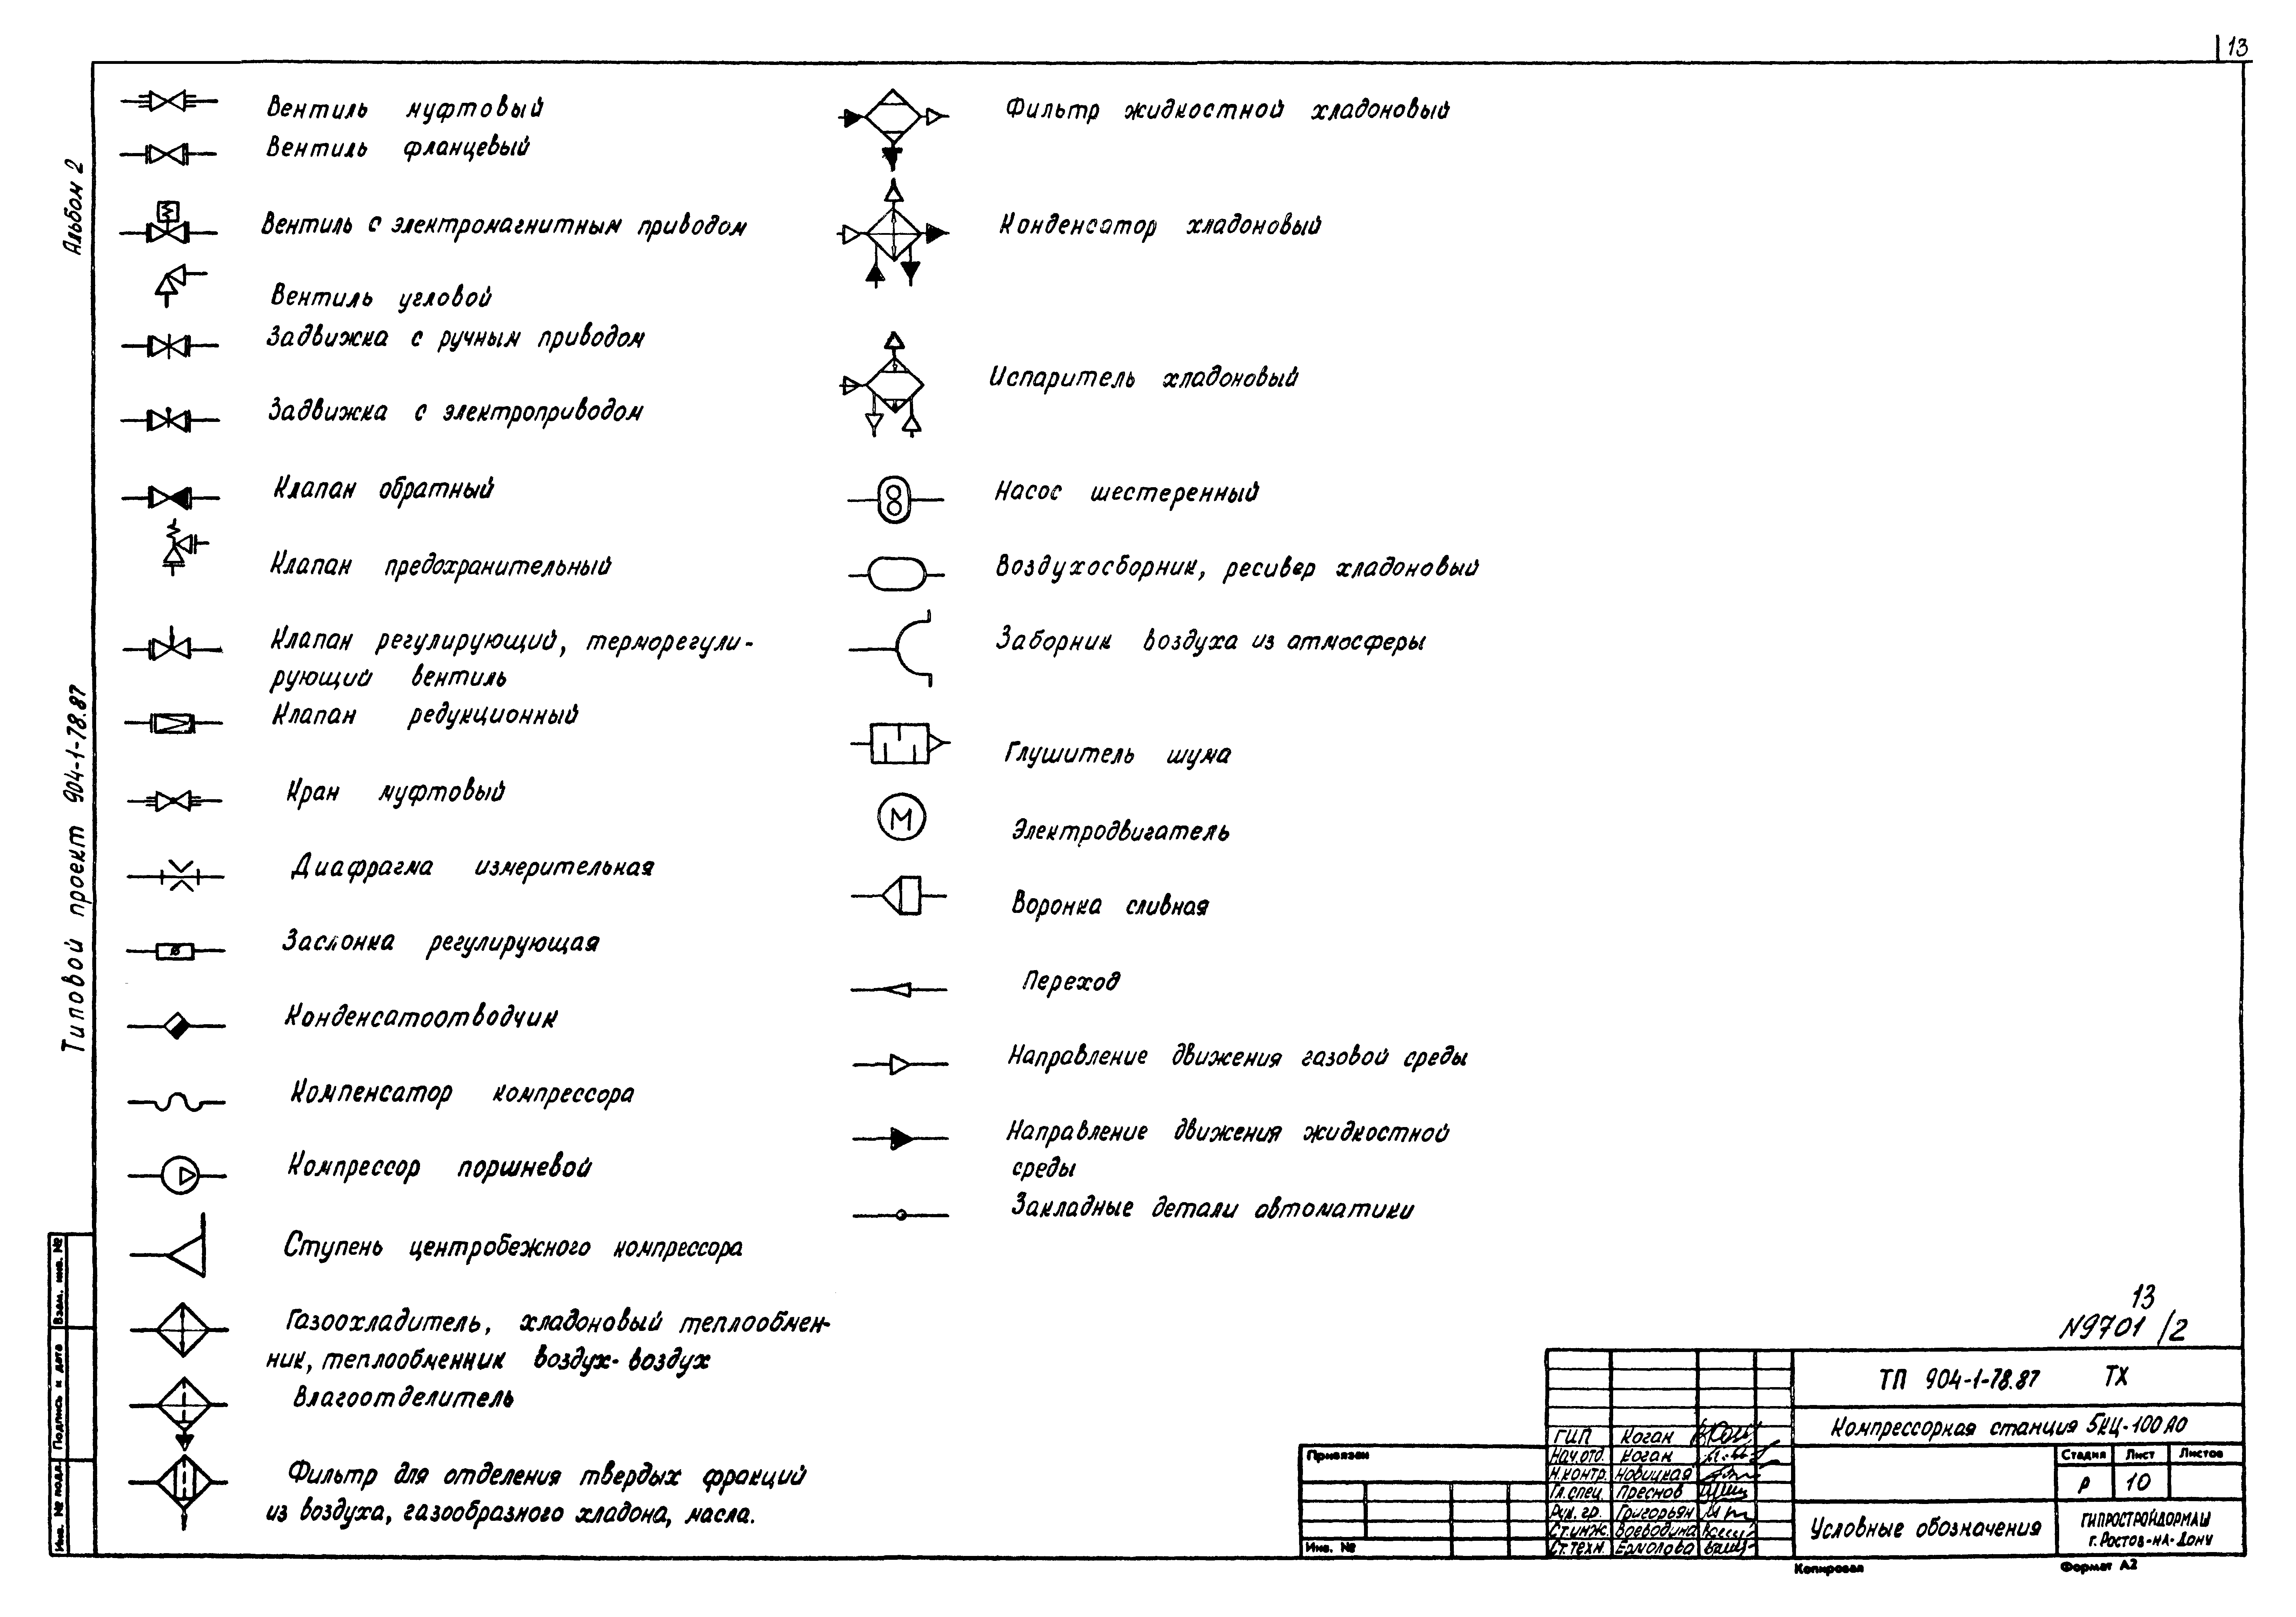 13
Альбом 2
Типовой проект 904-1-78.87
Вентиль муфтовый
Вентиль фланцевый
Вентиль с электромагнитным приводом
Вентиль угловой
Задвижка с ручным приводом
Задвижка с электроприводом
Клапан обратный
Клапан предохранительный
Клапан регулирующий, терморегули-
рующий вентиль
Клапан редукционный
Кран муфтовый
Диафрагма измерительная
Заслонка регулирующая
Конденсатоотводчик
Компенсатор компрессора
Компрессор поршневой
Ступень центробежного компрессора
Газоохладитель, хладоновый теплообмен-
ник, теплообменник воздух-воздух
Влагоотделитель
Фильтр для отделения твердых фракций
из воздуха, газообразного хладона, масла.
Фильтр жидкостной хладоновый
Конденсатор хладоновый
Испаритель хладоновый
Насос шестеренный
Воздухосборник, ресивер хладоновый
Заборник воздуха из атмосферы
Глушитель шума
М
Электродвигатель
Воронка сливная
Переход
Направление движения газовой среды
Направление движения жидкостной
среды
Закладные детали автоматики
13
N9701/2
ТП 904-1-78.87 ТХ
Компрессорная станция 5КЦ-100АО
Стадия Лист Листов
Р 10
Условные обозначения
ГИПРОСТРОЙДОРМАШ
г. Ростов-на-Дону
ГИП Коган
Нач.отд. Коган
Н.контр. Новицкая
Гл.спец. Преснов
Рук. гр. Григорьян
Ст.инж. Воеводина
Ст.техн. Ермолова
Привязан
Инв. №
Взам. инв. №
Подпись и дата
Инв. № подл.
Копировал
Формат А2